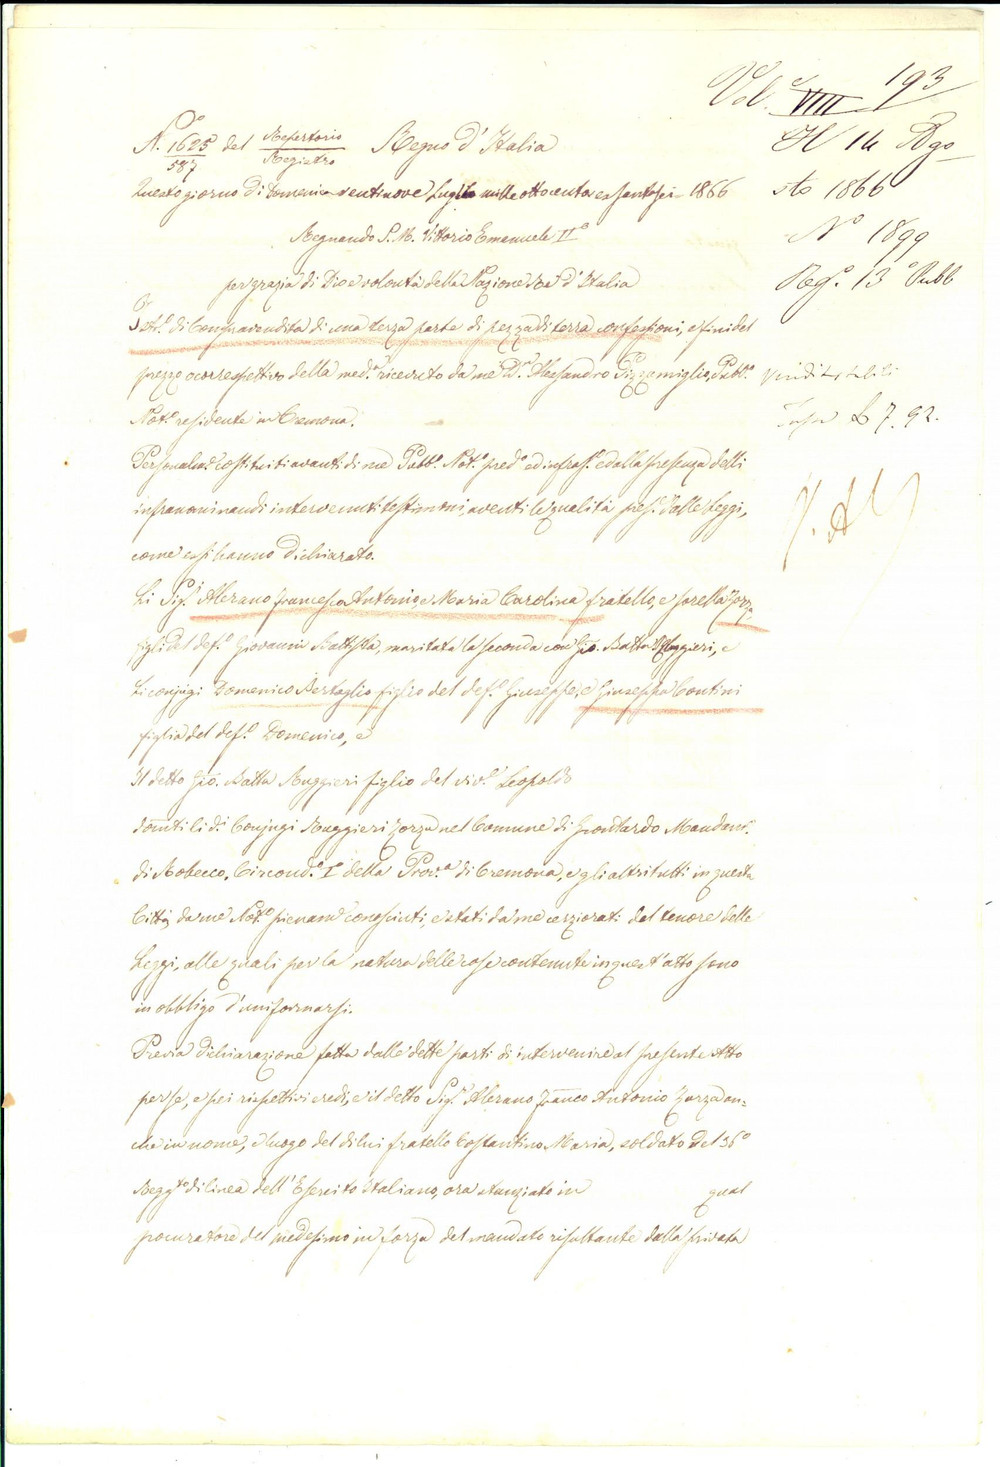 Vol. VIII 193
N.° 1625/587 del Repertorio/Registro Regno d'Italia
Il 14 Ago
sto 1866
Questo giorno di Domenica ventinove Luglio mille ottocento sessantasei = 1866
N° 1899
Regnando S. M. Vittorio Emanuele II°
Reg.° 13° Pubb
per grazia di Dio e volontà della Nazione Re d'Italia
di compravendita di una terza parte di pezza di terra con fezioni, e fini del
prezzo o correspettivo della med.ª ricevuto da me D.r Alessandro Pizzamiglio, Pubb.°
Not.° residente in Cremona.
L 7. 92.
Personalm.e costituiti avanti di me Pubb.° Not.° pred.° ed infras.° ed alla presenza delli
infranominandi intervenuti testimoni, aventi le qualità pres.e dalle Leggi,
come essi hanno dichiarato.
Li Sig.i Alerano Francesco Antonio, e Maria Carolina fratello, e sorella Zorza
figli del def.° Giovanni Battista, maritata la seconda con Gio. Batta Ruggieri, e
Li conjugi Domenico Bertaglio figlio del def.° Giuseppe, e Giuseppa Contini
figlia del def.° Domenico, e
Il detto Gio. Batta Ruggieri figlio del viv.e Leopoldo
domiti li d.i Conjugi Ruggieri Zorza nel Comune di Grontardo Mandam.°
di Robecco, Circond.° I° della Prov.ª di Cremona, e gli altri tutti in questa
Città da me Not.° pienam.e conosciuti, e stati da me cerziorati del tenore delle
Leggi, alle quali per la natura delle cose contenute in quest'atto sono
in obbligo d'uniformarsi.
Previa dichiarazione fatta dalle dette parti di intervenire al presente Atto
per se, e pei rispettivi eredi, e il detto Sig.r Alerano Franco Antonio Zorza an=
che in nome, e luogo del di lui fratello Costantino Maria, soldato del 36°
Regg.to di linea dell'Esercito Italiano, ora stanziato in qual
procuratore del medesimo in forza del mandato risultante dalla privata